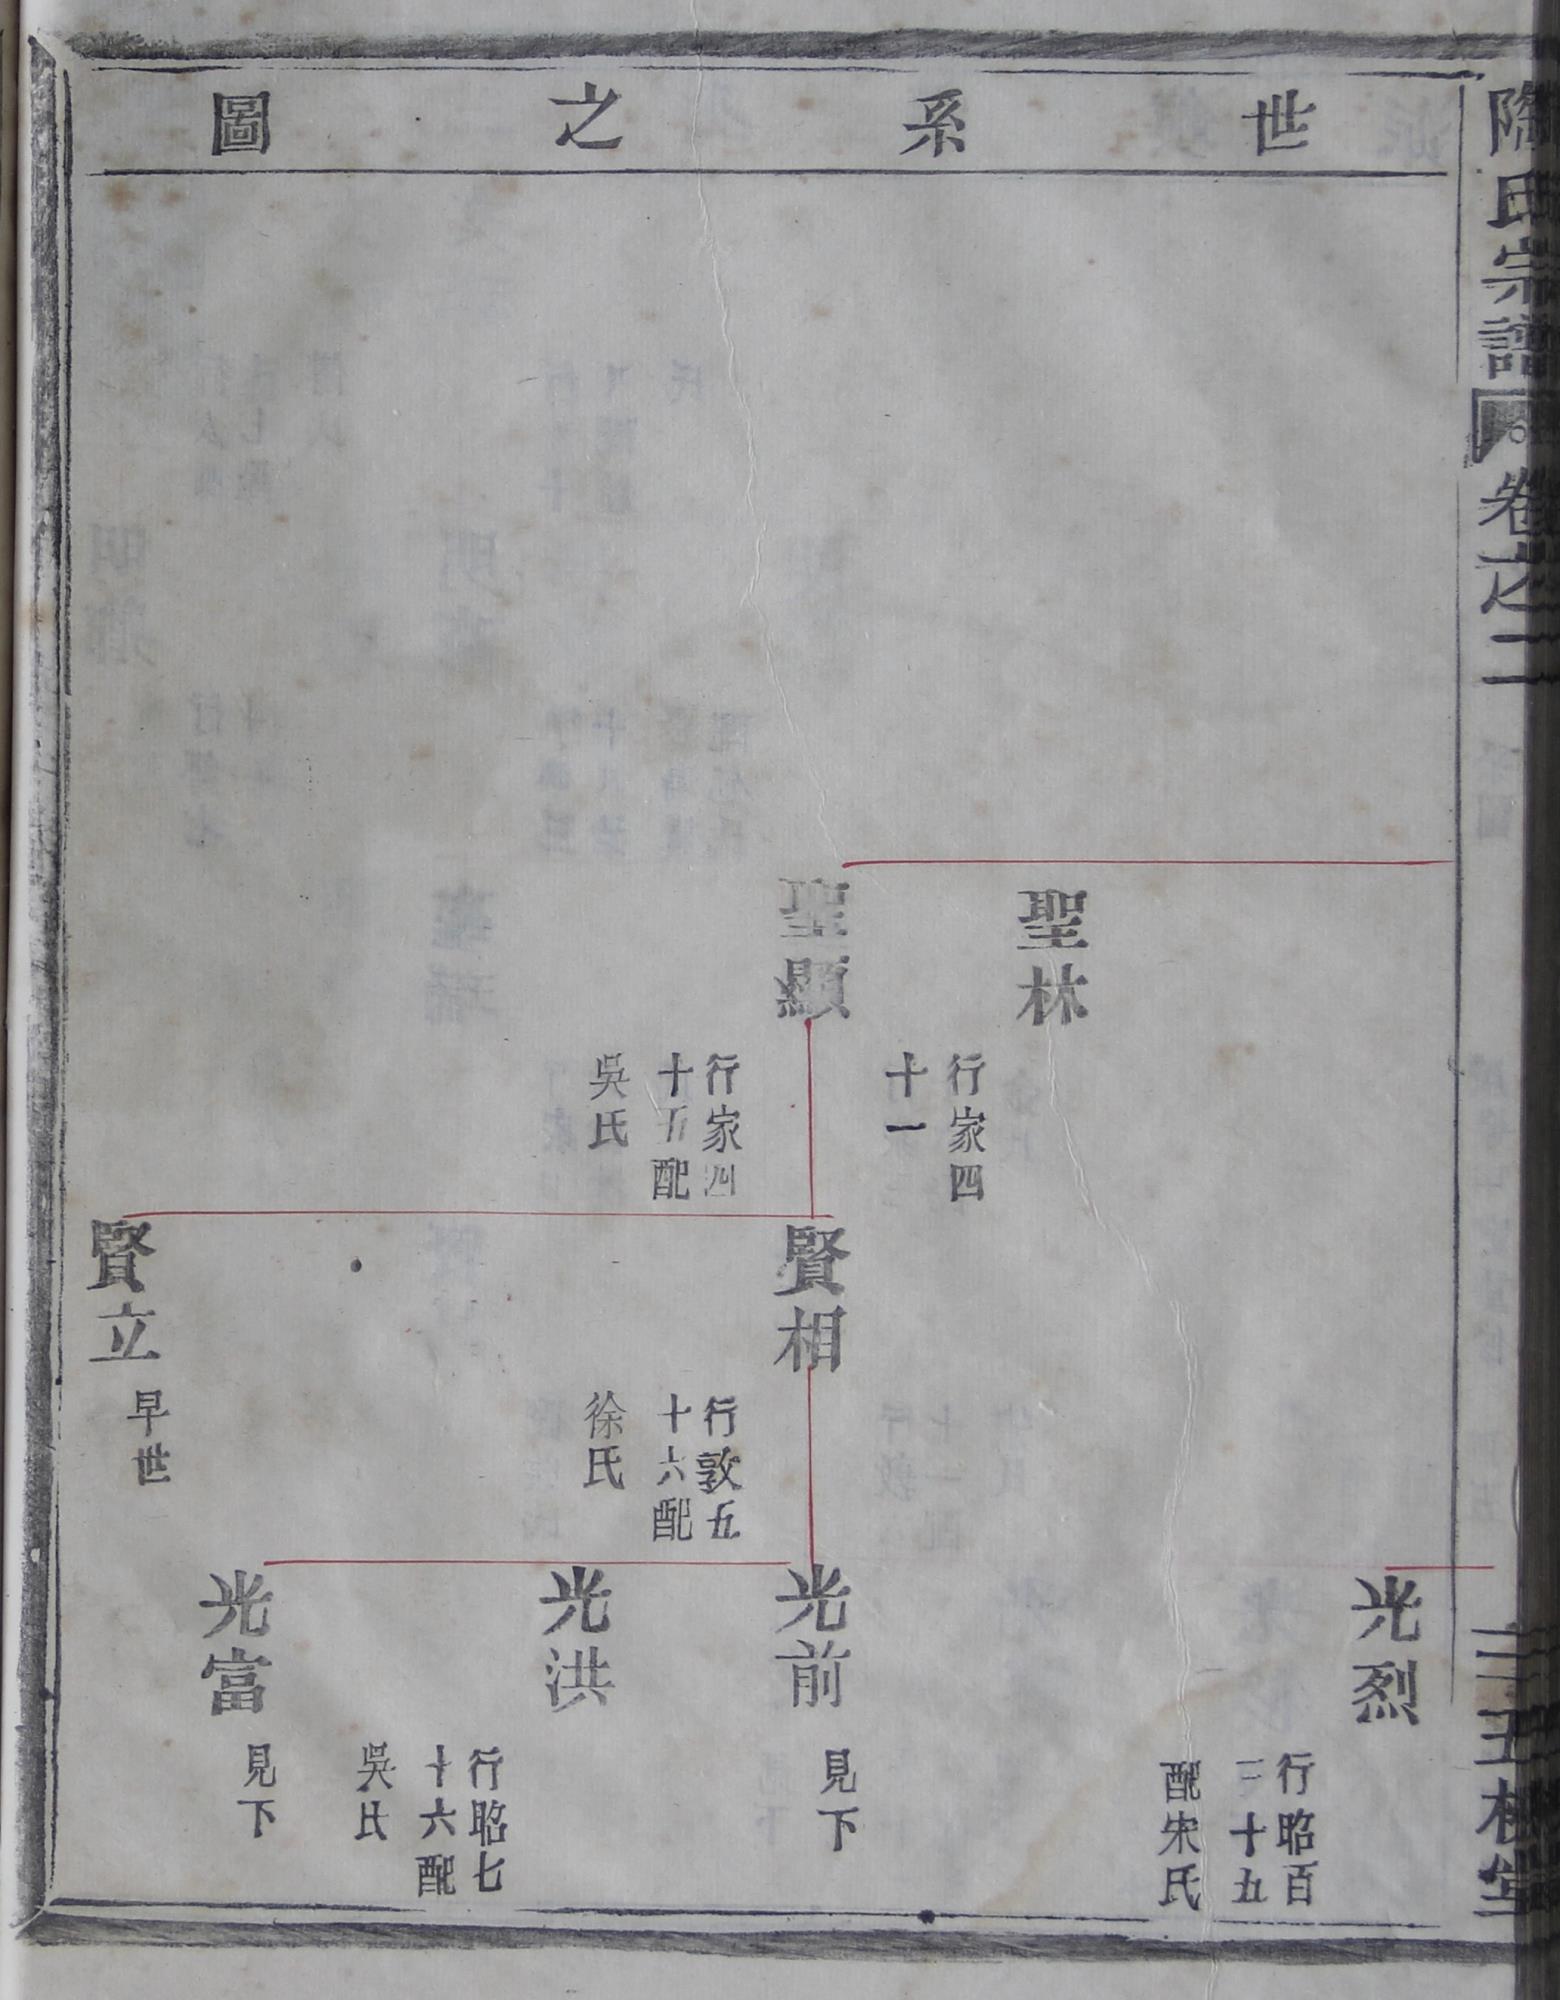 陶氏宗譜
卷之二
三五柳堂
世系之圖
聖林
行家四
十一
聖顯
行家四
十五配
吳氏
賢相
行敦五
十六配
徐氏
賢立
早世
光烈
行昭百
二十五
配宋氏
光前
見下
光洪
行昭七
十六配
吳氏
光富
見下